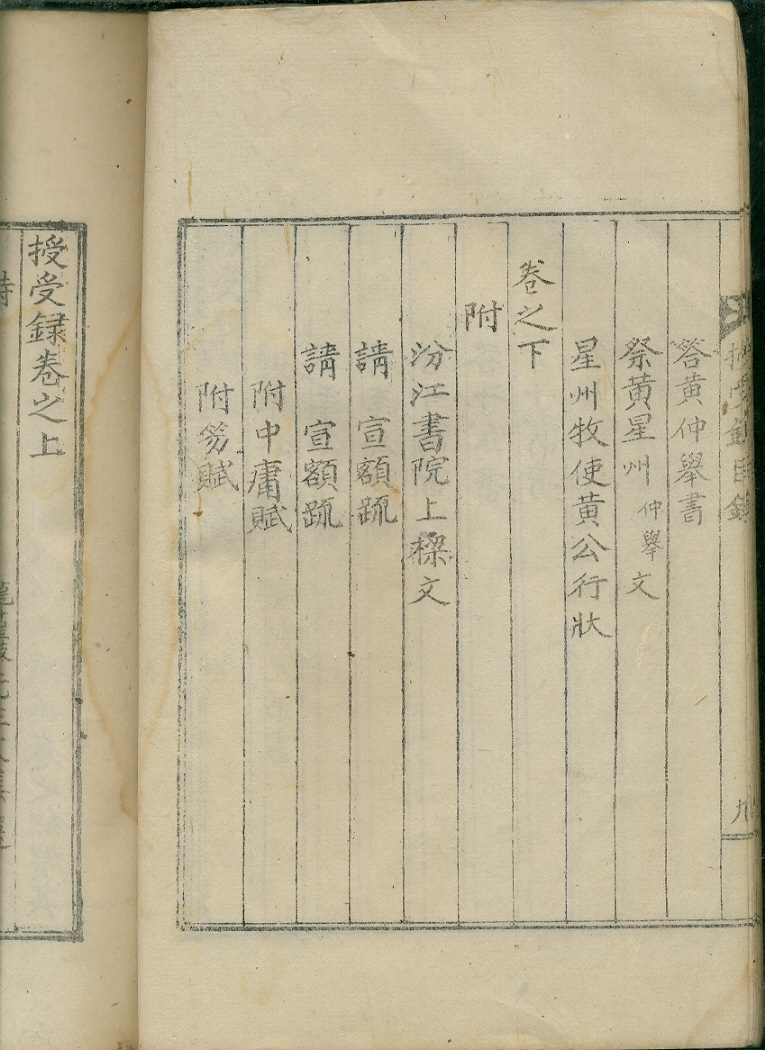 授受録目録
九
答黄仲舉書
祭黄星州仲舉文
星州牧使黄公行狀
卷之下
附
汾江書院上樑文
請 宣額䟽
請 宣額䟽
附中庸賦
附笏賦
授受録卷之上
詩